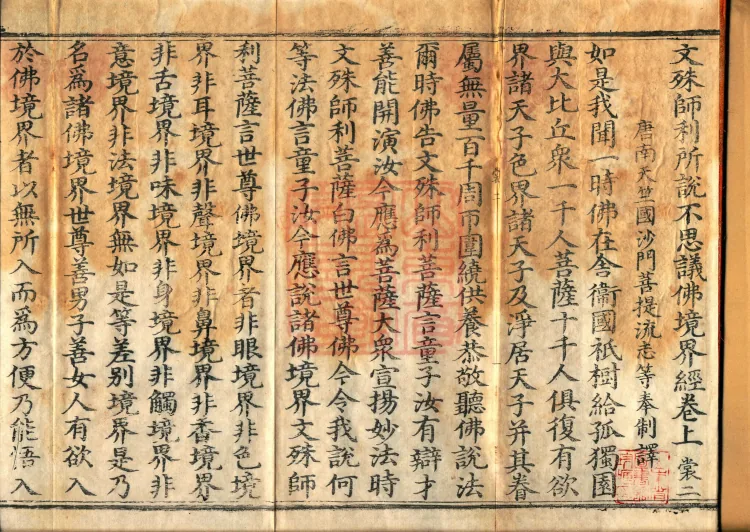 文殊師利所說不思議佛境界經卷上 裳二
唐南天竺國沙門菩提流志等奉制譯
如是我聞一時佛在舍衞國祇樹給孤獨園
與大比丘衆一千人菩薩十千人俱復有欲
界諸天子色界諸天子及淨居天子并其眷
屬無量百千周帀圍繞供養恭敬聽佛說法
爾時佛告文殊師利菩薩言童子汝有辯才
善能開演汝今應爲菩薩大衆宣揚妙法時
文殊師利菩薩白佛言世尊佛今令我說何
等法佛言童子汝今應說諸佛境界文殊師
利菩薩言世尊佛境界者非眼境界非色境
界非耳境界非聲境界非鼻境界非香境界
非舌境界非味境界非身境界非觸境界非
意境界非法境界無如是等差別境界是乃
名爲諸佛境界世尊善男子善女人有欲入
於佛境界者以無所入而爲方便乃能悟入